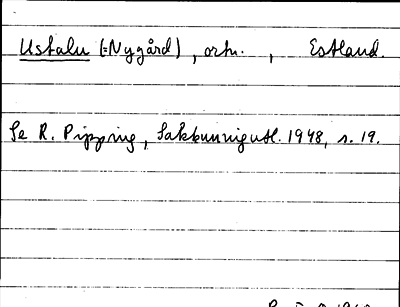 Ustalu (=Nygård), ortn., Estland.
Se R. Pipping, Sakkunnigutl. 1948, s. 19.